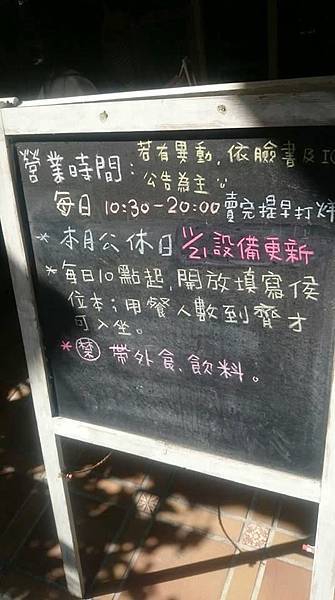 營業時間：若有異動，依臉書及IG
公告為主
每日 10:30-20:00 賣完提早打烊
*本月公休日 11/21 設備更新
*每日10點起，開放填寫侯
位本；用餐人數到齊才
可入坐。
*禁 帶外食、飲料。